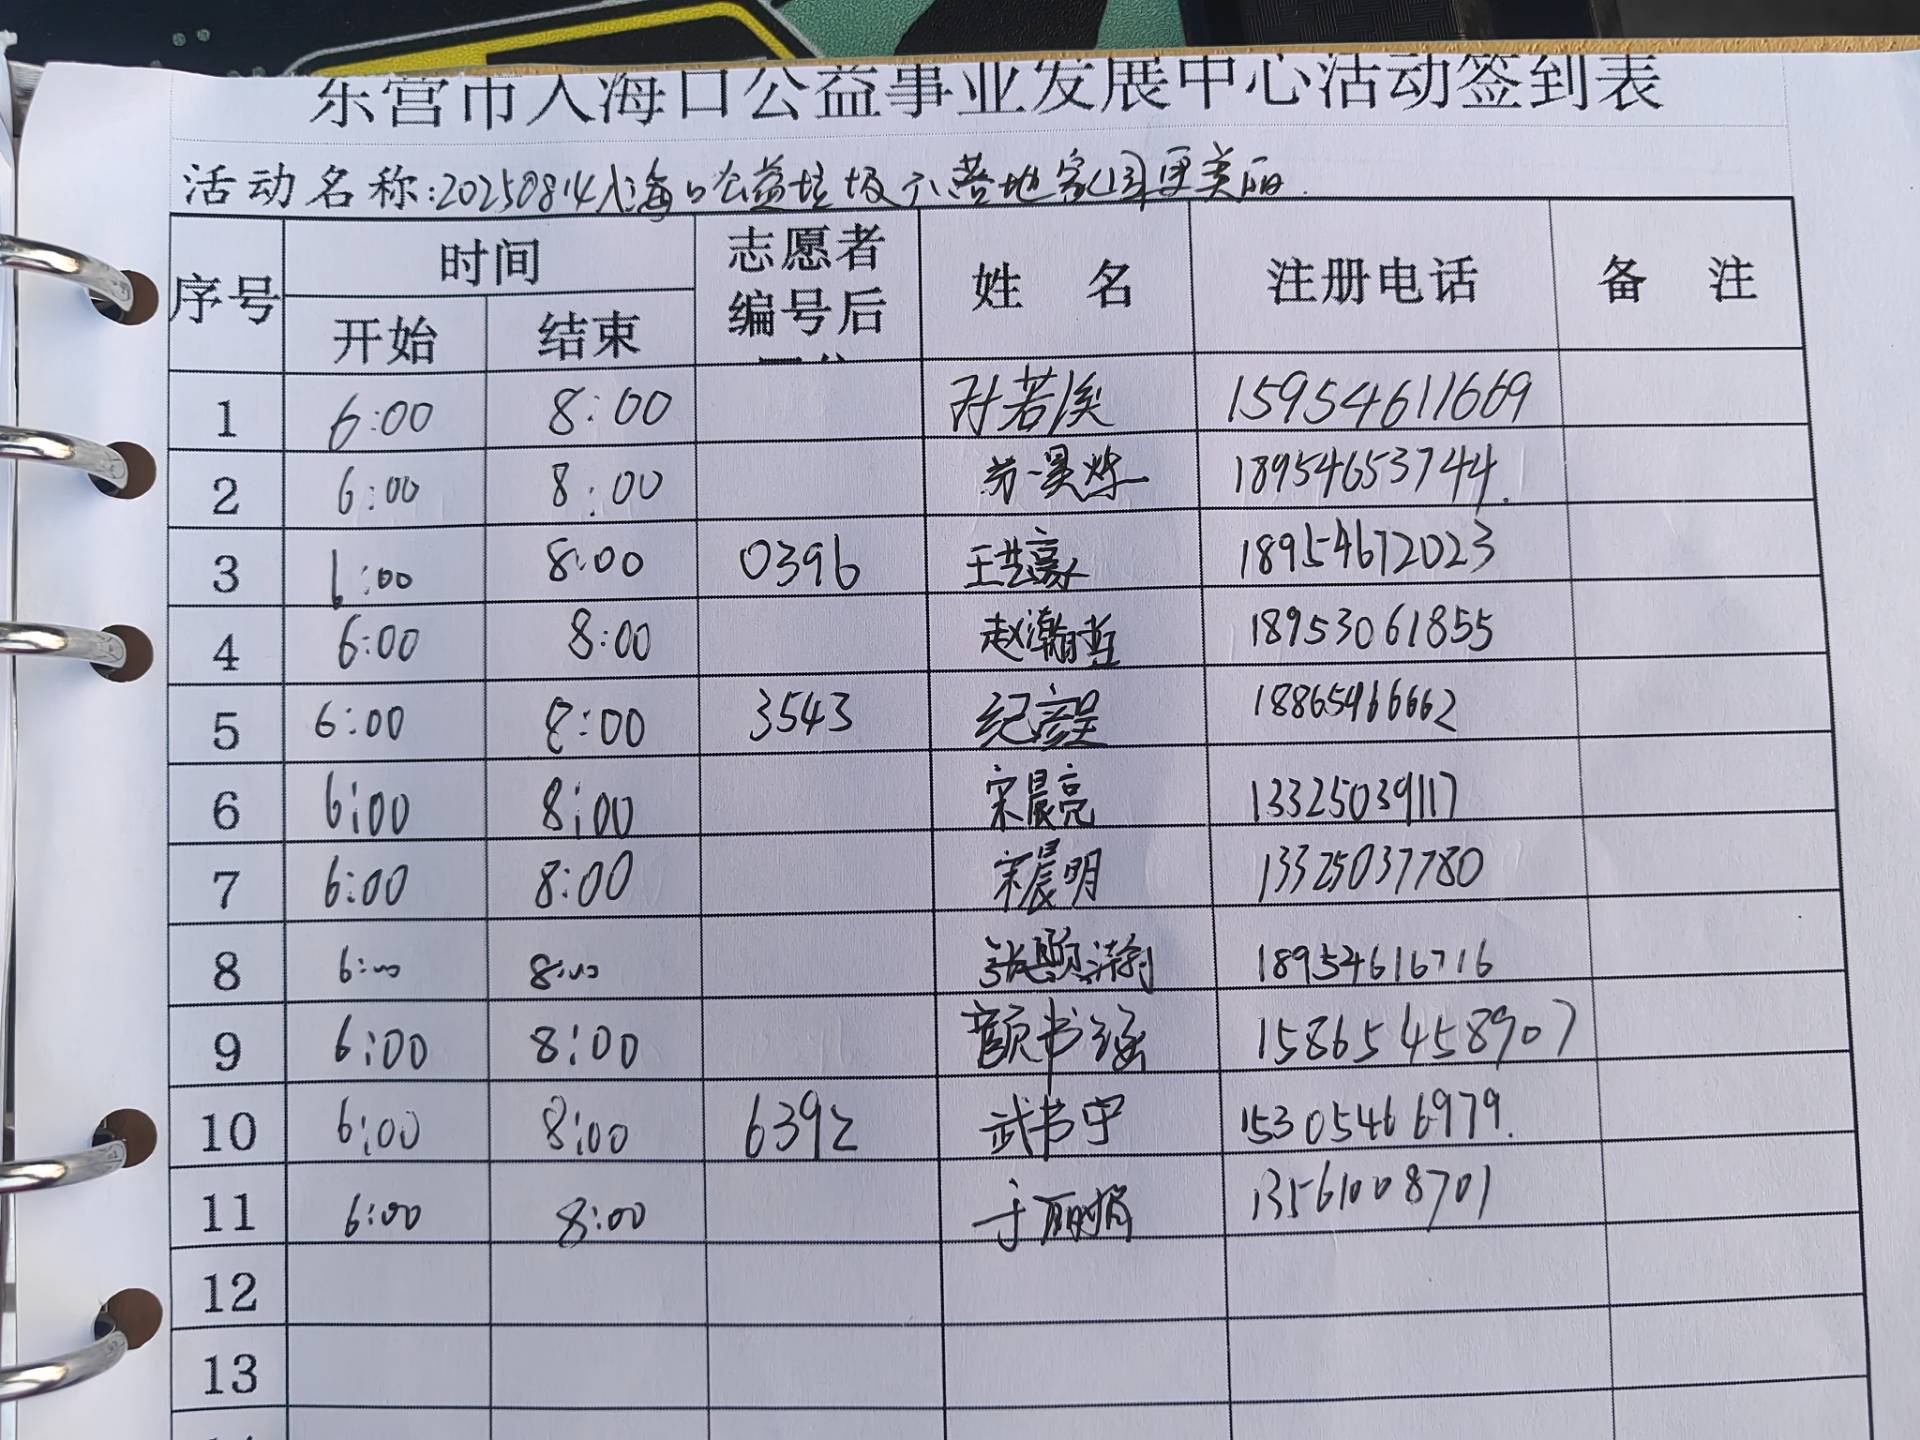 东营市入海口公益事业发展中心活动签到表
活动名称:20250814入海口公益垃圾不落地家园更美丽.
序号 时间 志愿者编号后 姓 名 注册电话 备 注
开始 结束
1 6:00 8:00 孙若溪 15954611669
2 6:00 8:00 18954653744.
3 6:00 8:00 0396 王艺豪 18954672023
4 6:00 8:00 赵瀚哲 18953061855
5 6:00 8:00 3543 纪彦呈 18865466662
6 6:00 8:00 宋晨亮 13325039117
7 6:00 8:00 宋晨明 13325037780
8 6:00 8:00 张颢瀚 18954616716
9 6:00 8:00 颜书涵 15865458907
10 6:00 8:00 6392 武书宁 15305466979.
11 6:00 8:00 于丽娟 13561008701
12
13